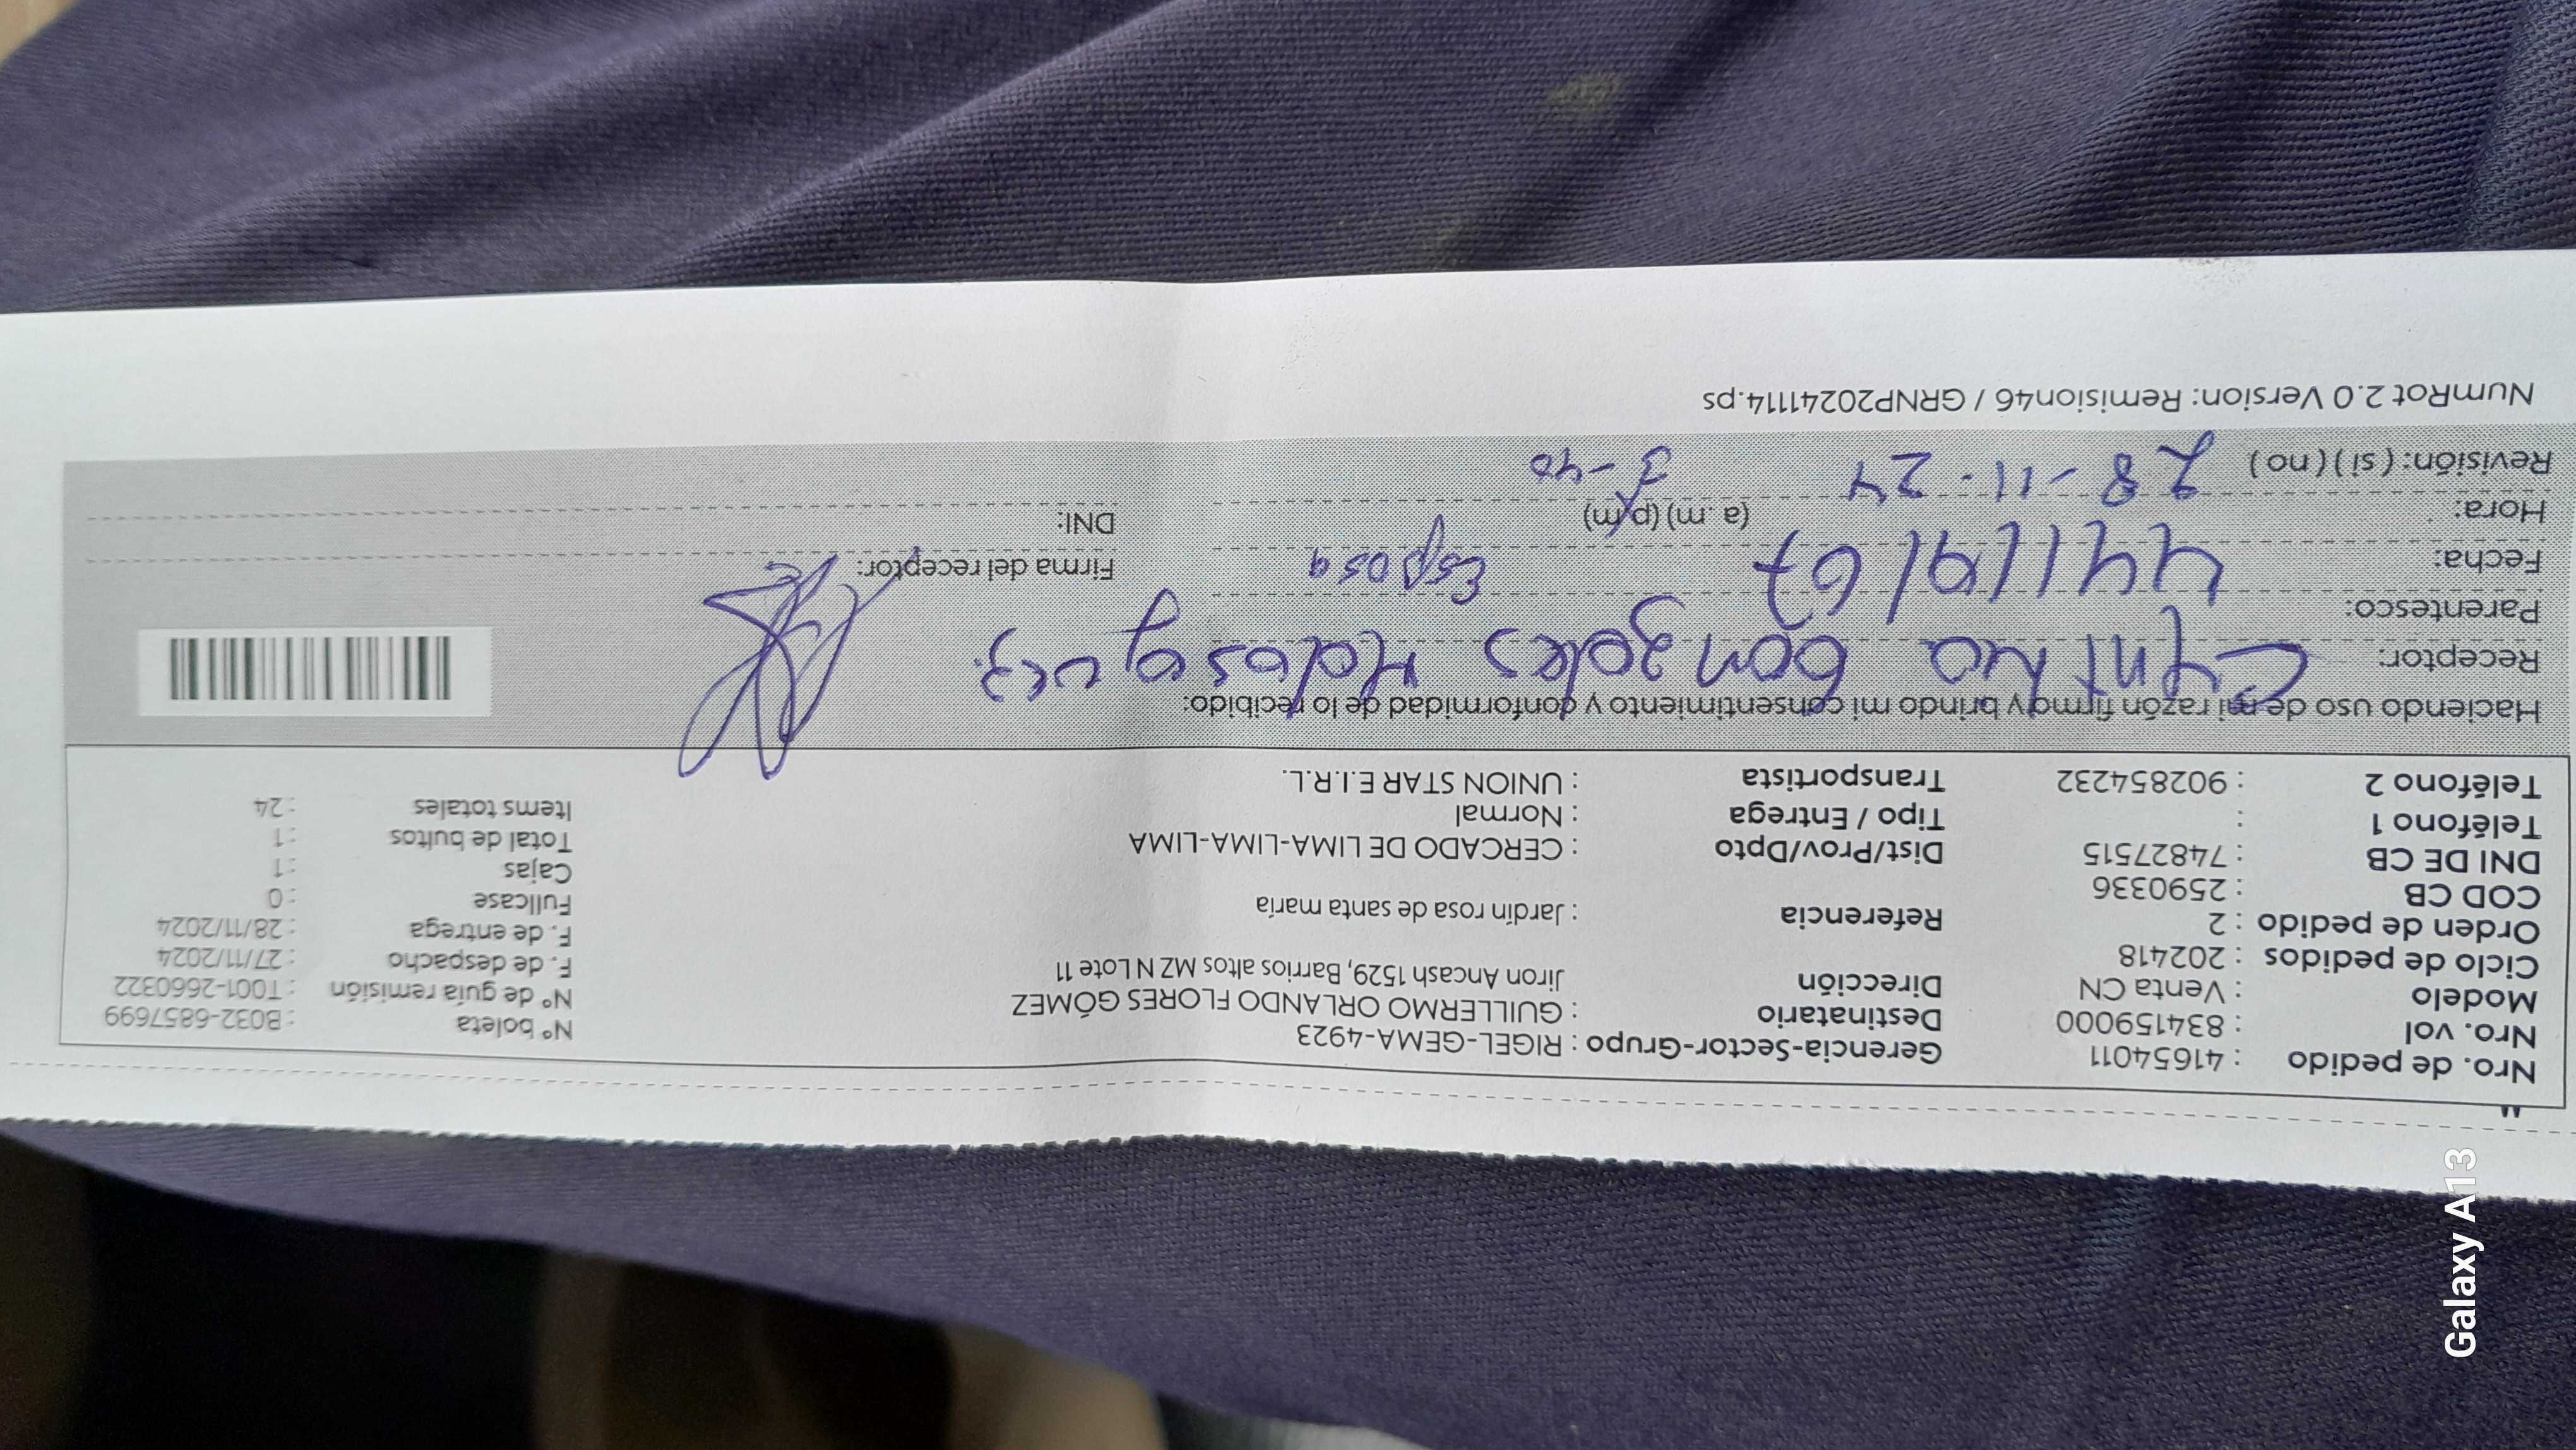 "
Nro. de pedido : 41654011
Nro. vol : 834159000
Modelo : Venta CN
Ciclo de pedidos : 202418
Orden de pedido : 2
COD CB : 2590336
DNI DE CB : 74827515
Teléfono 1 :
Teléfono 2 : 902854232
Gerencia-Sector-Grupo : RIGEL-GEMA-4923
Destinatario : GUILLERMO ORLANDO FLORES GÓMEZ
Dirección Jiron Ancash 1529, Barrios altos MZ N Lote 11
Referencia : Jardín rosa de santa maría
Dist/Prov/Dpto : CERCADO DE LIMA-LIMA-LIMA
Tipo / Entrega : Normal
Transportista : UNION STAR E.I.R.L.
N° boleta : B032-6857699
N° de guía remisión : T001-2660322
F. de despacho : 27/11/2024
F. de entrega : 28/11/2024
Fullcase : 0
Cajas : 1
Total de bultos : 1
Items totales : 24
Haciendo uso de mi razón firmo y brindo mi consentimiento y conformidad de lo recibido:
Receptor:
Parentesco: Esposa
Fecha:
Hora: (a. m) (p.m)
Revisión: ( si ) ( no ) 28-11-24 3-40
Firma del receptor:
DNI:
NumRot 2.0 Version: Remision46 / GRNP20241114.ps
Galaxy A13